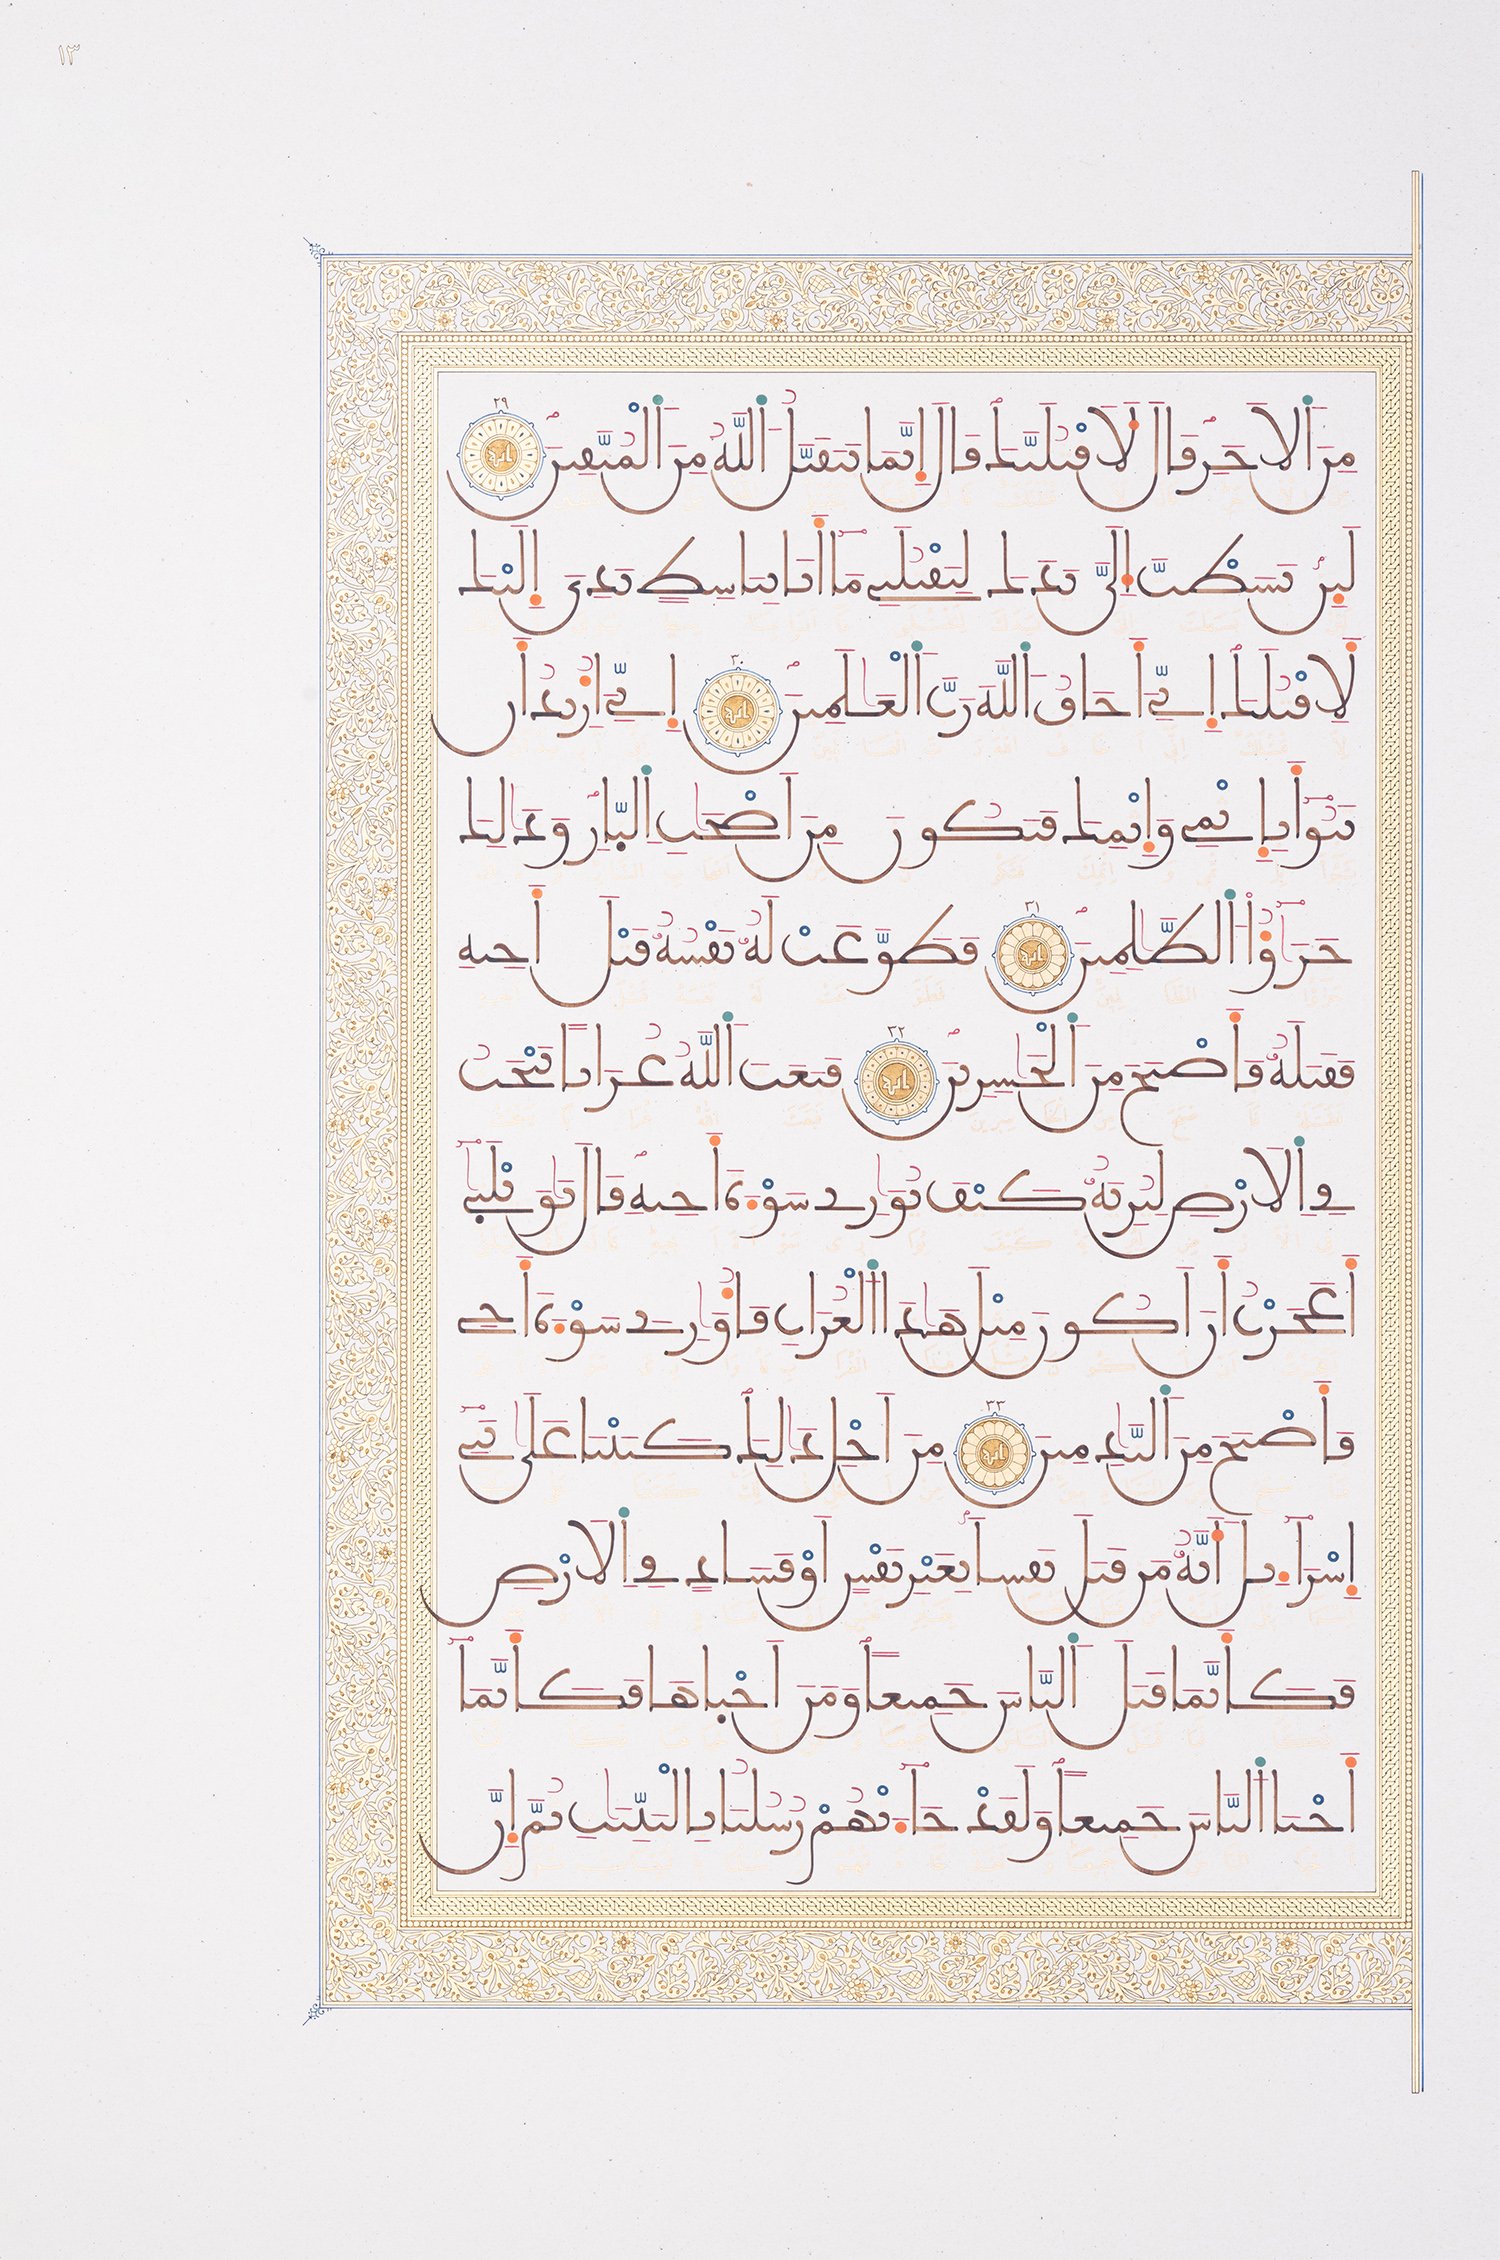 ١٣
مِنَ ٱلَاخَرِ قَالَ لَأَقْتُلَنَّكَ قَالَ إِنَّمَا يَتَقَبَّلُ ٱللَّهُ مِنَ ٱلْمُتَّقِينَ ٢٩
لَئِنۢ بَسَطتَّ إِلَيَّ يَدَكَ لِتَقْتُلَنِي مَآ أَنَا بِبَاسِطٍ يَدِيَ إِلَيْكَ
لِأَقْتُلَكَ إِنِّيَ أَخَافُ ٱللَّهَ رَبَّ ٱلْعَٰلَمِينَ ٣٠ إِنِّيَ أُرِيدُ أَن
تَبُوٓأَ بِإِثْمِي وَإِثْمِكَ فَتَكُونَ مِنَ اَصْحَٰبِ ٱلنَّارِ وَذَٰلِكَ
جَزَٰٓؤُاْ ٱلظَّٰلِمِينَ ٣١ فَطَوَّعَتْ لَهُۥ نَفْسُهُۥ قَتْلَ أَخِيهِ
فَقَتَلَهُۥ فَأَصْبَحَ مِنَ ٱلْخَٰسِرِينَ ٣٢ فَبَعَثَ ٱللَّهُ غُرَابًا يَبْحَثُ
فِي ٱلَارْضِ لِيُرِيَهُۥ كَيْفَ يُوَٰرِي سَوْءَةَ أَخِيهِ قَالَ يَٰوَيْلَتَىٰٓ
أَعَجَزْتُ أَنَ اَكُونَ مِثْلَ هَٰذَا ٱلْغُرَابِ فَأُوَٰرِيَ سَوْءَةَ أَخِي
فَأَصْبَحَ مِنَ ٱلنَّٰدِمِينَ ٣٣ مِنَ اَجْلِ ذَٰلِكَ كَتَبْنَا عَلَىٰ بَنِيٓ
إِسْرَآءِيلَ أَنَّهُۥ مَن قَتَلَ نَفْسًا بِغَيْرِ نَفْسٍ اَوْ فَسَادٍ فِي ٱلَارْضِ
فَكَأَنَّمَا قَتَلَ ٱلنَّاسَ جَمِيعًا وَمَنَ اَحْيَاهَا فَكَأَنَّمَآ
أَحْيَا ٱلنَّاسَ جَمِيعًا وَلَقَدْ جَآءَتْهُمْ رُسُلُنَا بِٱلْبَيِّنَٰتِ ثُمَّ إِنَّ